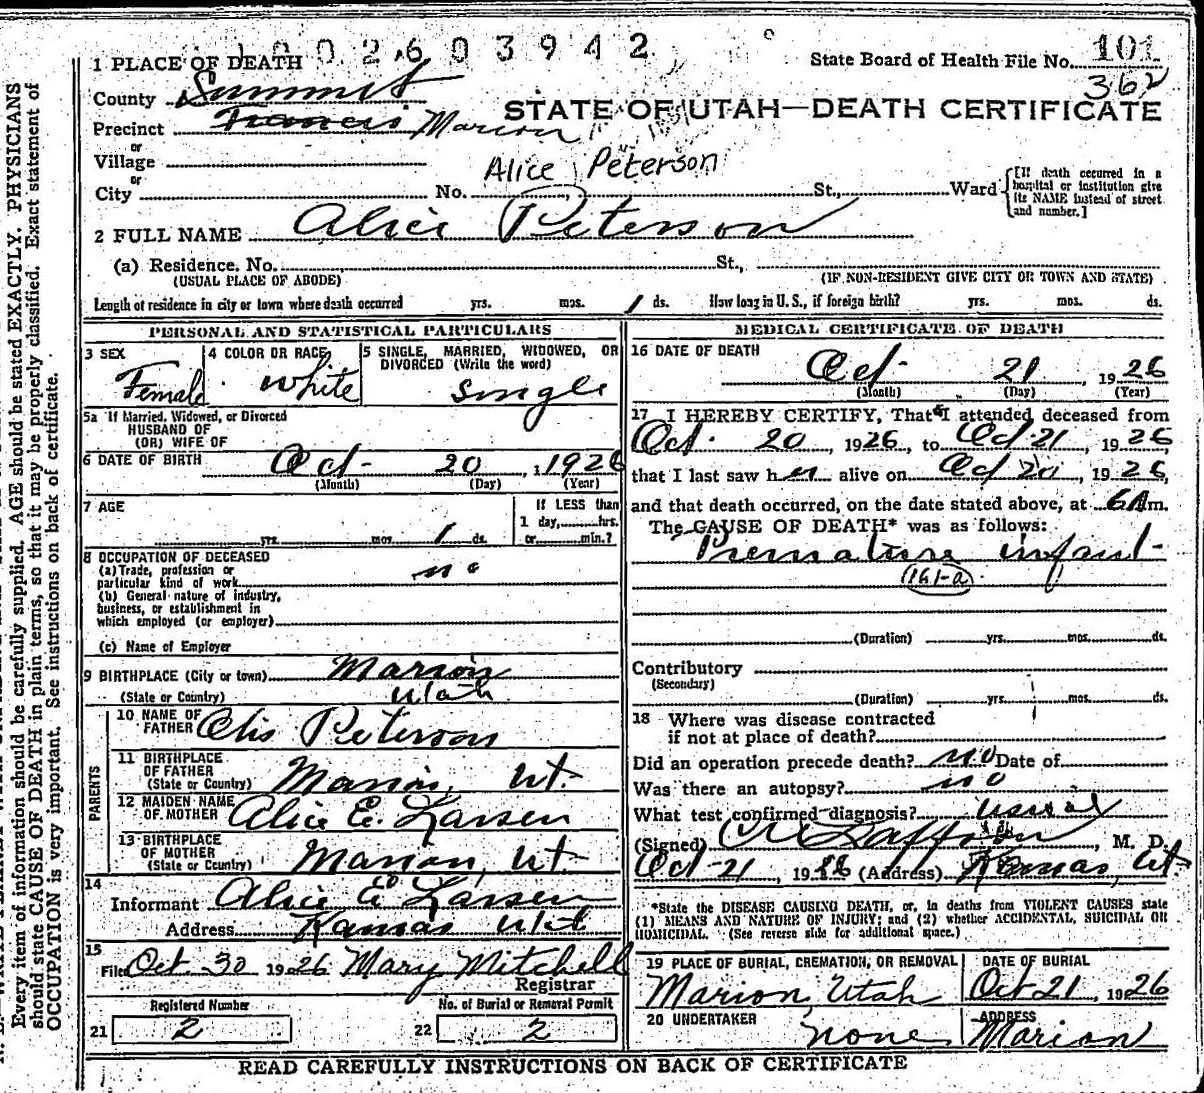 1002603942
State Board of Health File No. 101
362
1 PLACE OF DEATH
County Summit
STATE OF UTAH—DEATH CERTIFICATE
Precinct Francis Marion
or
Village
Alice Peterson
or
City No. St., Ward
[If death occurred in a hospital or institution give its NAME instead of street and number.]
2 FULL NAME Alice Peterson
(a) Residence. No. St.,
(USUAL PLACE OF ABODE) (IF NON-RESIDENT GIVE CITY OR TOWN AND STATE)
Length of residence in city or town where death occurred yrs. mos. 1 ds. How long in U. S., if foreign birth? yrs. mos. ds.
PERSONAL AND STATISTICAL PARTICULARS
3 SEX 4 COLOR OR RACE 5 SINGLE, MARRIED, WIDOWED, OR
DIVORCED (Write the word)
Female White Single
5a If Married, Widowed, or Divorced
HUSBAND OF
(OR) WIFE OF
6 DATE OF BIRTH Oct- 20, 1926
(Month) (Day) (Year)
7 AGE If LESS than
1 day, hrs.
yrs. mos. 1 ds. or min.?
8 OCCUPATION OF DECEASED
(a) Trade, profession or
particular kind of work no
(b) General nature of industry,
business, or establishment in
which employed (or employer)
(c) Name of Employer
9 BIRTHPLACE (City or town) Marion
(State or Country) Utah
PARENTS
10 NAME OF
FATHER Otis Peterson
11 BIRTHPLACE
OF FATHER
(State or Country) Marion, Ut.
12 MAIDEN NAME
OF MOTHER Alice E. Larsen
13 BIRTHPLACE
OF MOTHER
(State or Country) Marion, Ut
14
Informant Alice E Larsen
Address Kamas Ut
15
Filed Oct 30 1926 Mary Mitchell
Registrar
Registered Number No. of Burial or Removal Permit
21 2 22 2
MEDICAL CERTIFICATE OF DEATH
16 DATE OF DEATH
Oct- 21, 1926
(Month) (Day) (Year)
17 I HEREBY CERTIFY, That I attended deceased from
Oct. 20, 1926, to Oct 21, 1926,
that I last saw her alive on Oct 20, 1926,
and that death occurred, on the date stated above, at 6 A m.
The CAUSE OF DEATH* was as follows:
Premature infant-
161-a
(Duration) yrs. mos. ds.
Contributory
(Secondary)
(Duration) yrs. mos. ds.
18 Where was disease contracted
if not at place of death?
Did an operation precede death? no Date of
Was there an autopsy? no
What test confirmed diagnosis? usual
(Signed) M. D.
Oct-21, 1926 (Address) Kamas, Ut.
*State the DISEASE CAUSING DEATH, or, in deaths from VIOLENT CAUSES state
(1) MEANS AND NATURE OF INJURY; and (2) whether ACCIDENTAL, SUICIDAL OR
HOMICIDAL. (See reverse side for additional space.)
19 PLACE OF BURIAL, CREMATION, OR REMOVAL DATE OF BURIAL
Marion, Utah Oct 21, 1926
20 UNDERTAKER ADDRESS
none Marion
READ CAREFULLY INSTRUCTIONS ON BACK OF CERTIFICATE
Every item of information should be carefully supplied. AGE should be stated EXACTLY. PHYSICIANS
should state CAUSE OF DEATH in plain terms, so that it may be properly classified. Exact statement of
OCCUPATION is very important. See instructions on back of certificate.